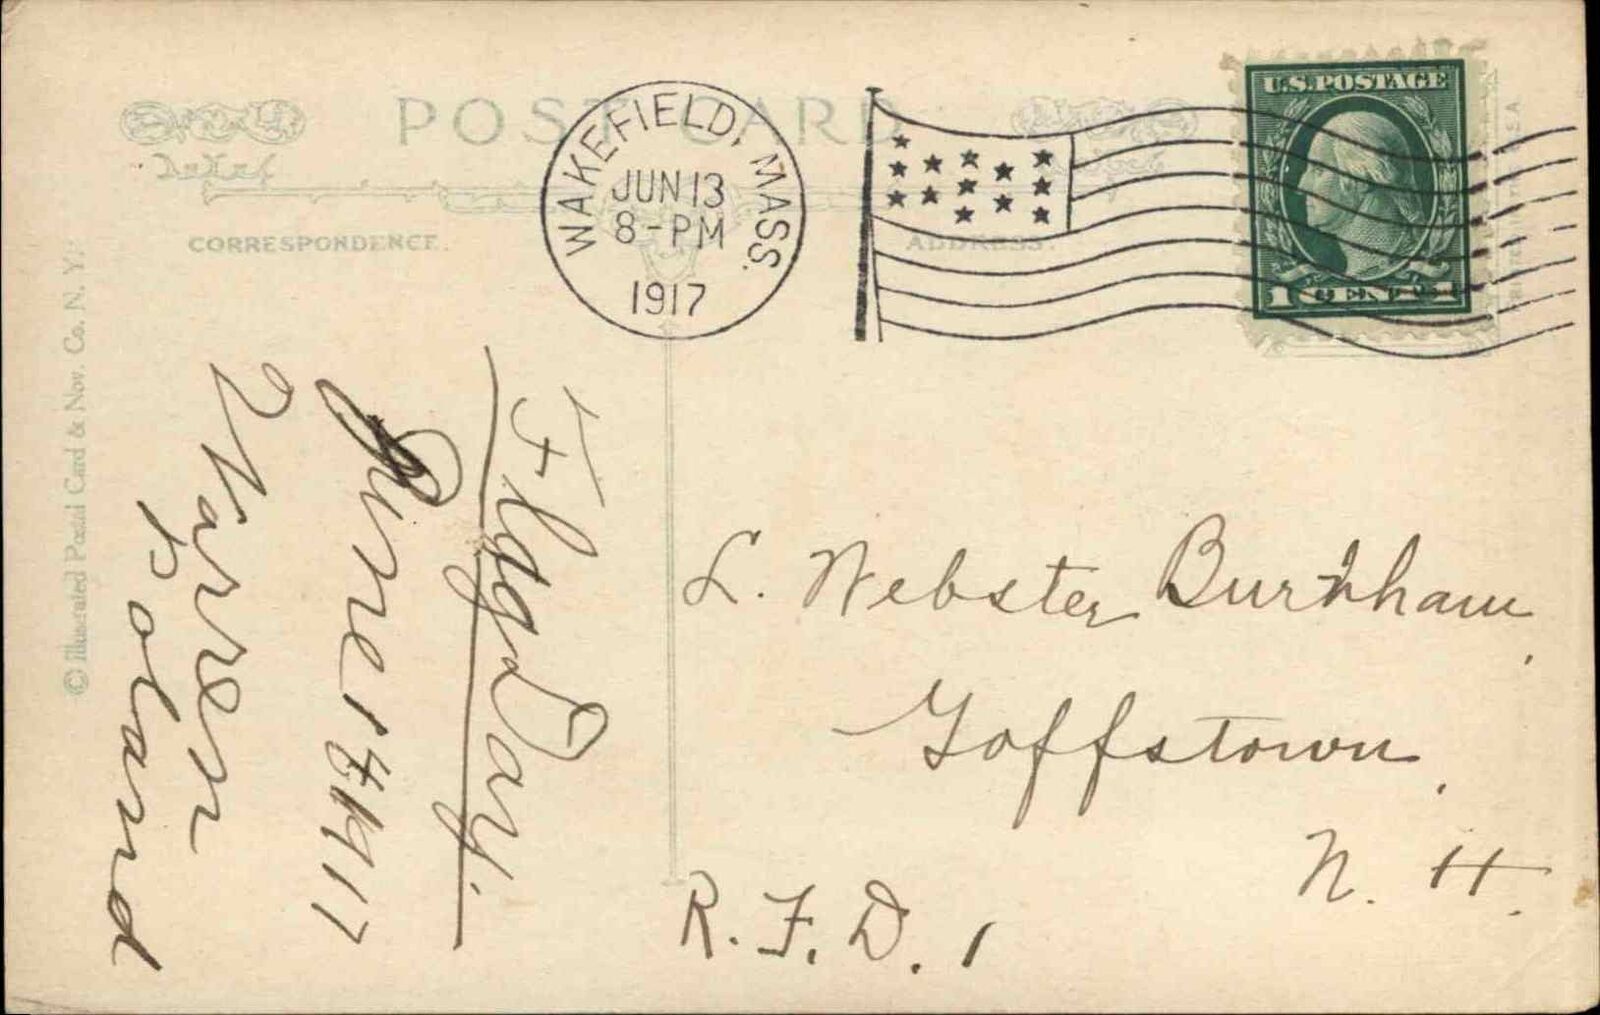 POST CARD
CORRESPONDENCE.
ADDRESS.
WAKEFIELD, MASS.
JUN 13
8-PM
1917
U.S. POSTAGE
1 CENT 1
© Illustrated Postal Card & Nov. Co. N. Y.
Flag Day.
June 14 1917
Warren
Poland
L. Webster Burnham,
Goffstown,
N. H.
R. F. D. 1